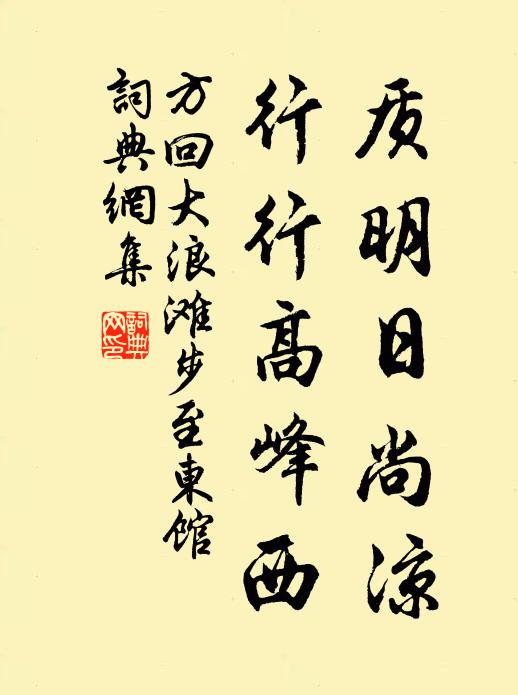 质明日尚凉
行行高峰西
方回大浪滩步至东馆
詞典網集
詞典网印